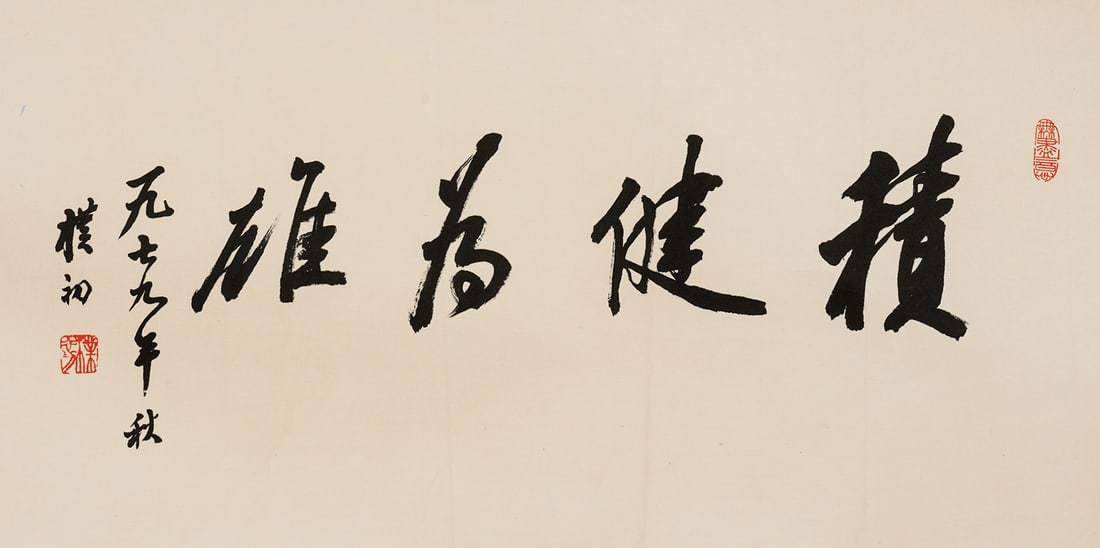 積健为雄
一九七九年秋
樸初